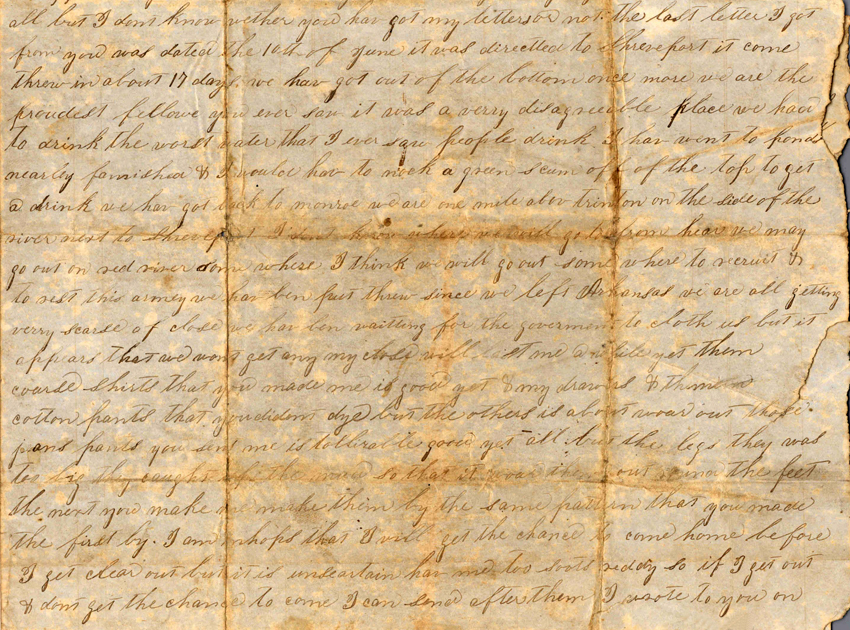 all but I dont know wether you hav got my letters or not the last letter I got
from you was dated the 10th of June it was directted to Shreveport it come
threw in about 17 days we hav got out of the bottom once more we are the
proudest fellows you ever saw it was a verry disagneeable place we had
to drink the worst water that I ever saw people drink I hav went to ponds
nearley famished & I would hav to a green scum off of the top to get
a drink we hav got back to monroe we are one mile abov trinton on the side of the
river next to Shreveport I dont know where we will go to from hear we may
go out on red river some where I think we will go out some where to recruit &
to rest this armey we hav ben put threw since we left Arkansas we are all getting
verry scarse of close we hav ben waitting for the goverment to cloth us but it
appears that we wont get any my close will last me a while yet them
coarse shirts that you made me is good yet & my drawers & them
cotton pants that you didont dye but the others is about woar out those
jeans pants you sent me is tollirable good yet all but the legs they was
too big they caught the mud so that it woar them out round the feet
the next you make me make them by the same pattirn that you made
the first by. I am inhops that I will get the chance to come home before
I get clear out but it is unscartain hav me too soots reddy so if I get out
& dont get the chance to come I can send after them I wrote to you on